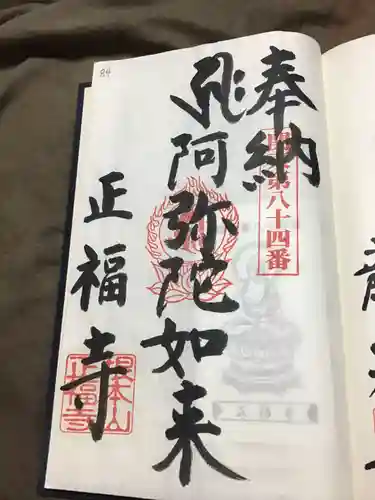 84
奉納
第八十四番
阿弥陀如来
正福寺